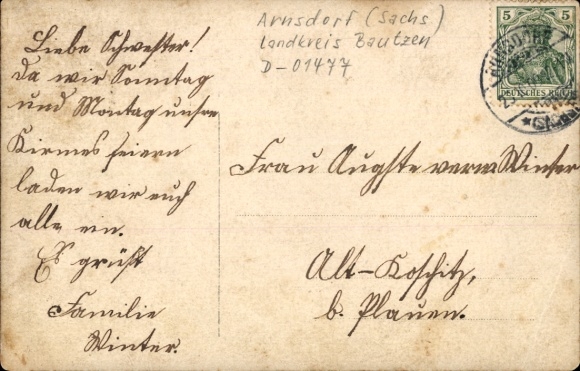 Arnsdorf (Sachs)
Landkreis Bautzen
D-01477
5 5
DEUTSCHES REICH
ARNSDORF
Liebe Schwester!
Da wir Sonntag
und Montag unsre
Kirmes feiern
laden wir euch
alle ein.
Es grüst
Familie
Winter.
Frau Augste verw. Winter
Alt-Koschitz,
b. Plauen.